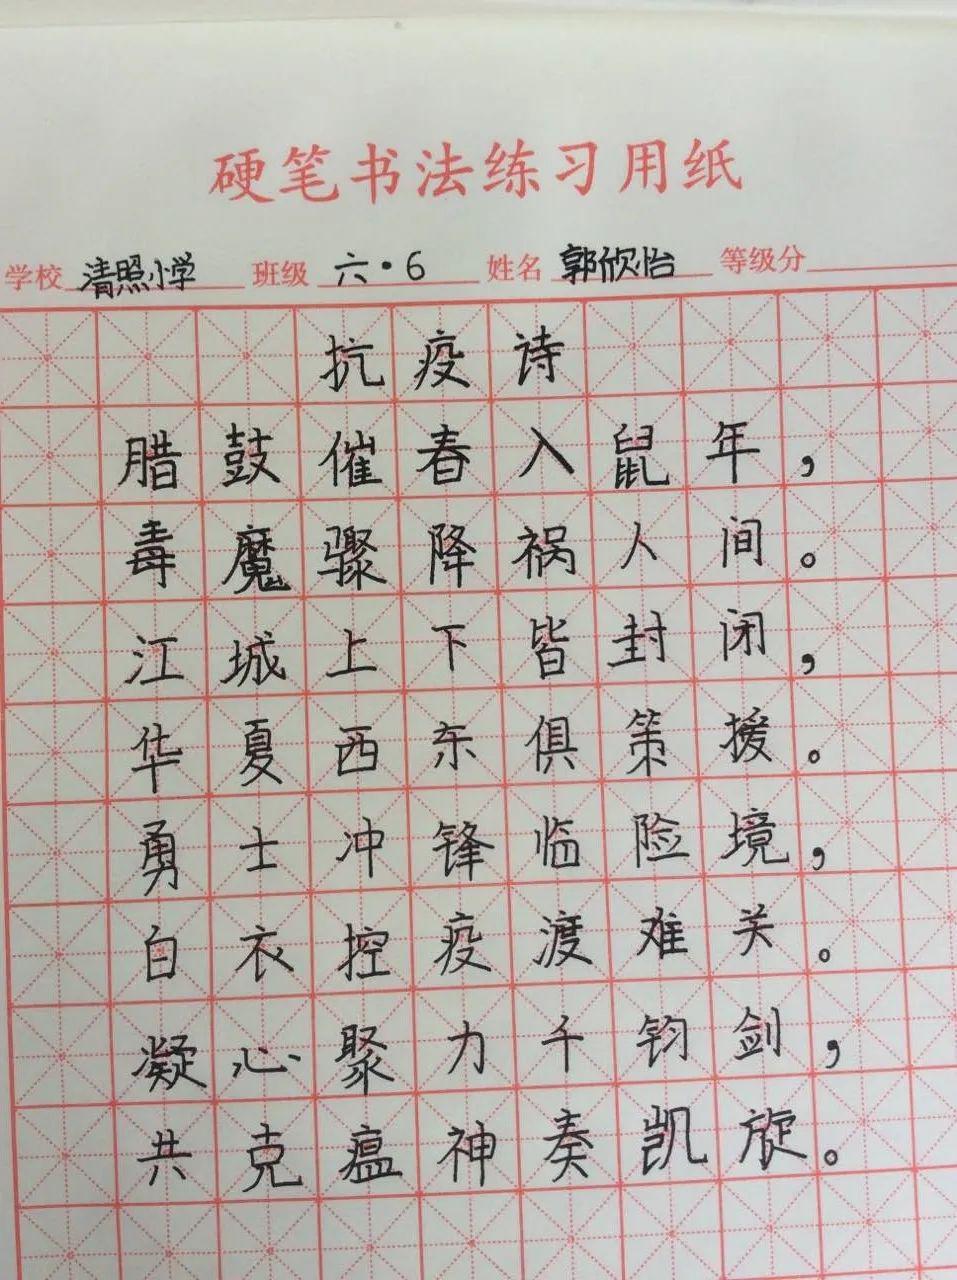 硬笔书法练习用纸
学校 清照小学 班级 六·6 姓名 郭欣怡 等级分
抗疫诗
腊鼓催春入鼠年，
毒魔骤降祸人间。
江城上下皆封闭，
华夏西东俱策援。
勇士冲锋临险境，
白衣控疫渡难关。
凝心聚力千钧剑，
共克瘟神奏凯旋。